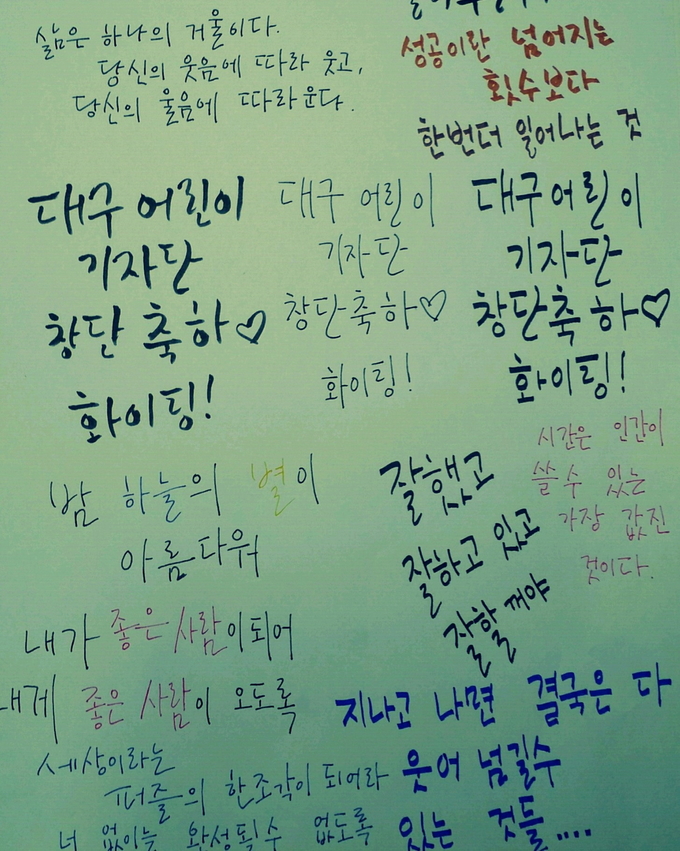 삶은 하나의 거울이다.
당신의 웃음에 따라 웃고,
당신의 울음에 따라운다.
성공이란 넘어지는
횟수보다
한번더 일어나는 것
대구 어린이
기자단
창단 축하♡
화이팅!
대구 어린이
기자단
창단축하♡
화이팅!
대구어린이
기자단
창단축하♡
화이팅!
밤 하늘의 별이
아름다워
잘했고
잘하고 있고
잘할꺼야
시간은 인간이
쓸 수 있는
가장 값진
것이다.
내가 좋은 사람이되어
내게 좋은 사람이 오도록
지나고 나면 결국은 다
웃어 넘길수
있는 것들....
세상이라는
퍼즐의 한조각이 되어라
너 없이는 완성될수 없도록